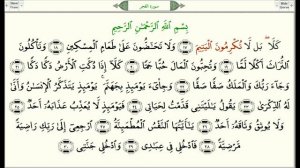 سورة الفجر
بِسْمِ ٱللَّهِ ٱلرَّحْمَٰنِ ٱلرَّحِيمِ
كَلَّا ۖ بَل لَّا تُكْرِمُونَ ٱلْيَتِيمَ ﴿١٧﴾ وَلَا تَحَٰٓضُّونَ عَلَىٰ طَعَامِ ٱلْمِسْكِينِ ﴿١٨﴾ وَتَأْكُلُونَ
ٱلتُّرَاثَ أَكْلًا لَّمًّا ﴿١٩﴾ وَتُحِبُّونَ ٱلْمَالَ حُبًّا جَمًّا ﴿٢٠﴾ كَلَّآ إِذَا دُكَّتِ ٱلْأَرْضُ دَكًّا دَكًّا ﴿٢١﴾
وَجَآءَ رَبُّكَ وَٱلْمَلَكُ صَفًّا صَفًّا ﴿٢٢﴾ وَجِا۟ىٓءَ يَوْمَئِذٍۭ بِجَهَنَّمَ ۚ يَوْمَئِذٍ يَتَذَكَّرُ ٱلْإِنسَٰنُ وَأَنَّىٰ
لَهُ ٱلذِّكْرَىٰ ﴿٢٣﴾ يَقُولُ يَٰلَيْتَنِى قَدَّمْتُ لِحَيَاتِى ﴿٢٤﴾ فَيَوْمَئِذٍ لَّا يُعَذِّبُ عَذَابَهُۥٓ أَحَدٌ ﴿٢٥﴾
وَلَا يُوثِقُ وَثَاقَهُۥٓ أَحَدٌ ﴿٢٦﴾ يَٰٓأَيَّتُهَا ٱلنَّفْسُ ٱلْمُطْمَئِنَّةُ ﴿٢٧﴾ ٱرْجِعِىٓ إِلَىٰ رَبِّكِ رَاضِيَةً
مَّرْضِيَّةً ﴿٢٨﴾ فَٱدْخُلِى فِى عِبَٰدِى ﴿٢٩﴾ وَٱدْخُلِى جَنَّتِى ﴿٣٠﴾